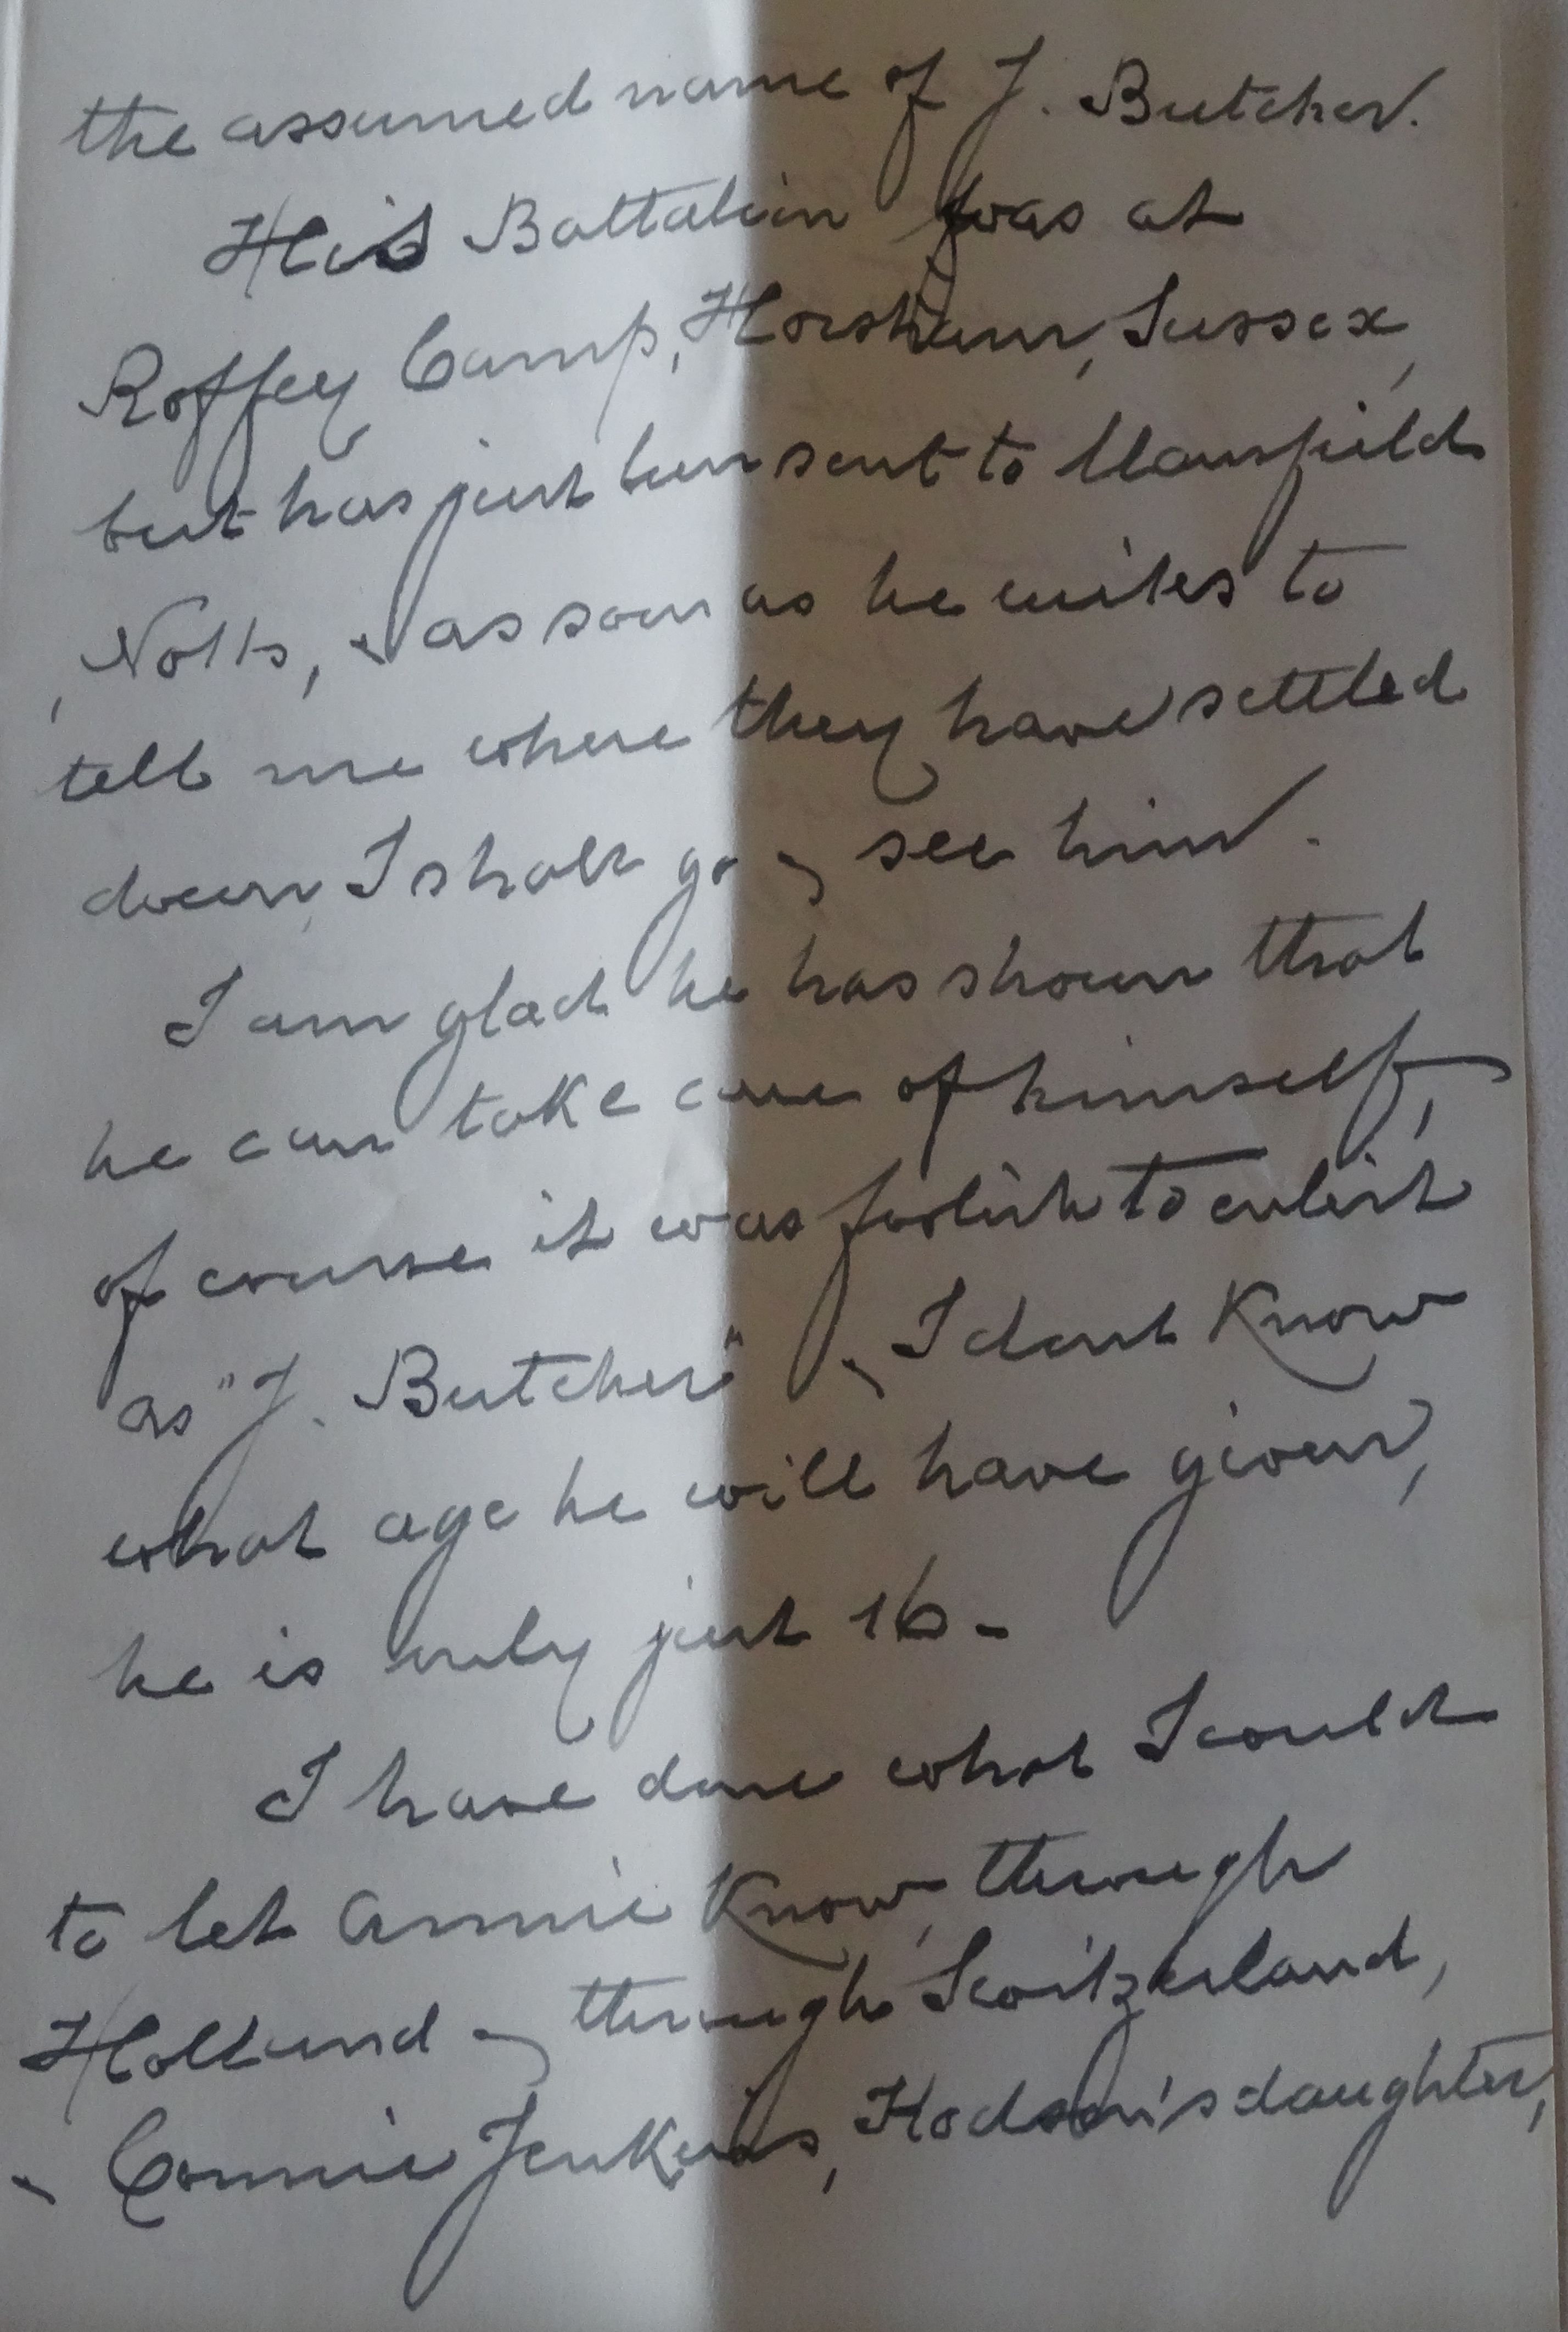 the assumed name of J. Butcher.
His Battalion was at
Roffey Camp, Horsham, Sussex,
but has just been sent to Mansfield
, Notts, & as soon as he writes to
tell me where they have settled
down, I shall go & see him.
I am glad he has shown that
he can take care of himself,
of course it was foolish to enlist
as "J. Butcher" & I dont know
what age he will have given,
he is only just 16 -
I have done what I could
to let Annie know, through
Holland & through Switzerland,
& Connie Jenkins, Hodson's daughter,